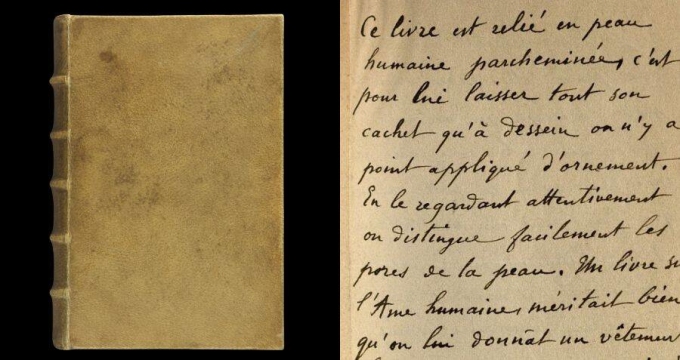 Ce livre est relié en peau
humaine parcheminée, c'est
pour lui laisser tout son
cachet qu'à dessein on n'y a
point appliqué d'ornement.
En le regardant attentivement
on distingue facilement les
pores de la peau. Un livre su
l'Ame humaine, méritait bien
qu'on lui donnât un vêtemen